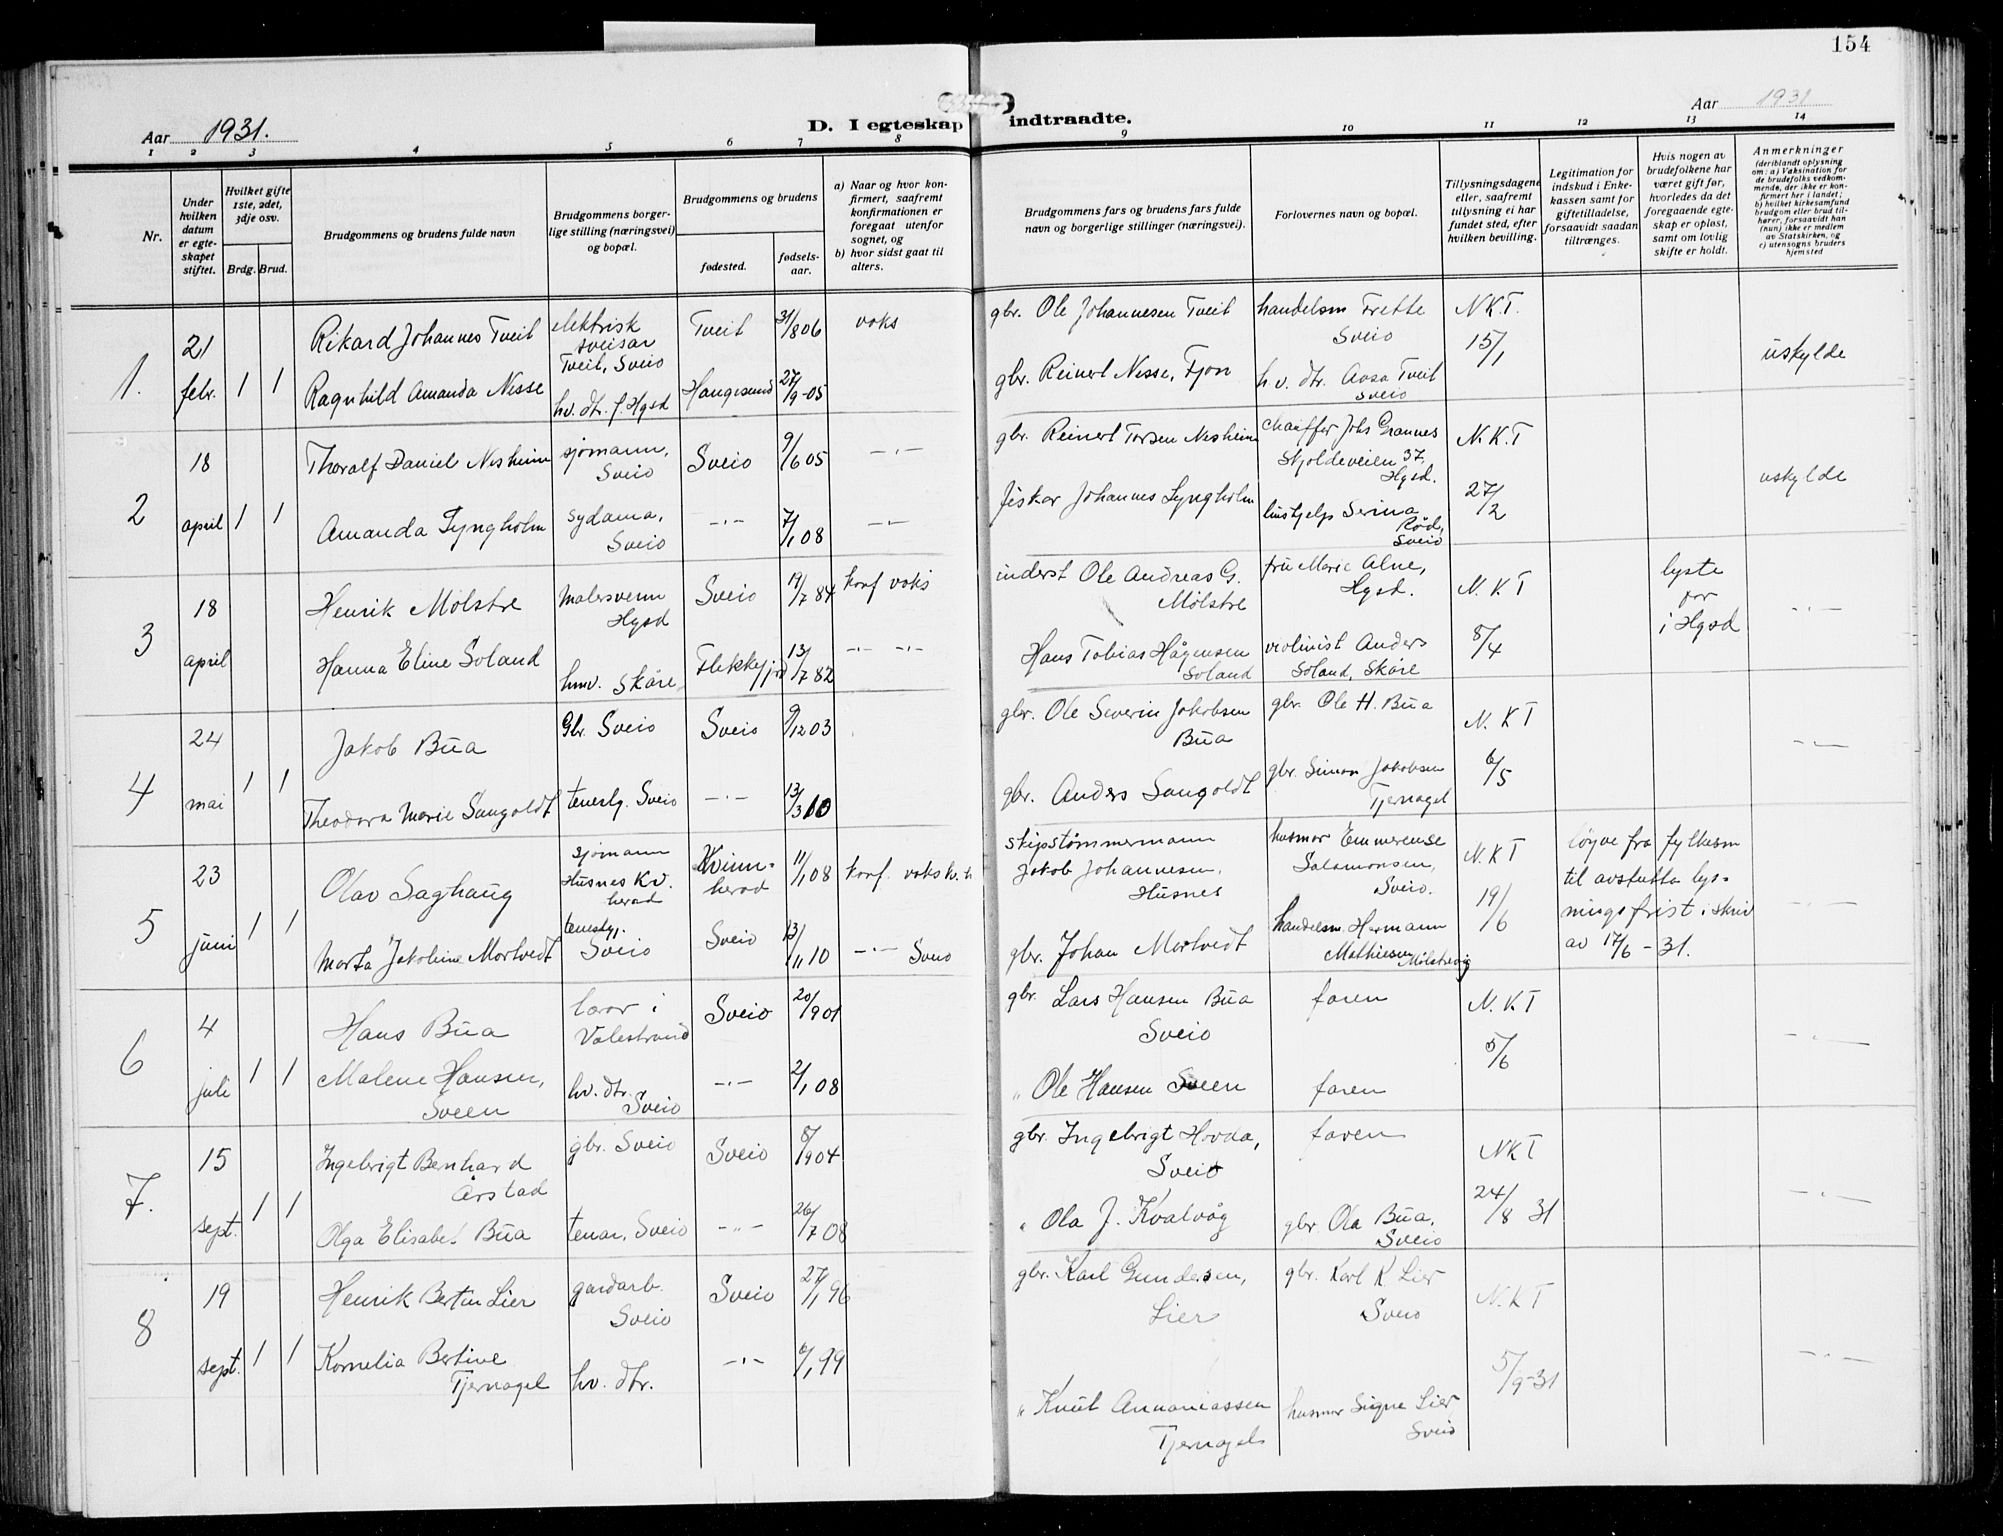 154
Aar 1931.
D. I egteskap indtraadte.
Aar 1931
1 2 3 4 5 6 7 8 9 10 11 12 13 14
Nr.
Under hvilken datum er egteskapet stiftet.
Hvilket gifte 1ste, 2det, 3dje osv.
Brdg. Brud.
Brudgommens og brudens fulde navn
Brudgommens borgerlige stilling (næringsvei) og bopæl.
Brudgommens og brudens
fødested.
fødselsaar.
a) Naar og hvor konfirmert, saafremt konfirmationen er foregaat utenfor sognet, og
b) hvor sidst gaat til alters.
Brudgommens fars og brudens fars fulde navn og borgerlige stillinger (næringsvei).
Forlovernes navn og bopæl.
Tillysningsdagene eller, saafremt tillysning ei har fundet sted, efter hvilken bevilling.
Legitimation for indskud i Enkekassen samt for giftetilladelse, forsaavidt saadan tiltrænges.
Hvis nogen av brudefolkene har været gift før, hvorledes da det foregaaende egteskap er opløst, samt om lovlig skifte er holdt.
Anmerkninger
(deriblandt oplysning om: a) Vaksination for de brudefolks vedkommende, der ikke er konfirmert her i landet; b) hvilket kirkesamfund brudgom eller brud tilhører, forsaavidt han (hun) ikke er medlem av Statskirken, og c) utensogns bruders hjemsted
1. 21 febr. 1 1
Rikard Johannes Tveit elektrisk sveisar Tveit, Sveio Tveit 31/8 06 voks
gbr. Ole Johannesen Tveit handelsm Frette Sveio N.K.T. 15/1 uskylde
Ragnhild Amanda Nesse hv. dtr. f. Hgsd Haugesund 27/9-05
gbr. Reinert Nesse, Fjon hv. dtr. Aasa Tveit Sveio
2 18 april 1 1
Thoralf Daniel Nesheim sjømann, Sveio Sveio 9/6 05 -"-
gbr. Reinert Torsen Nesheim chauffør Johs Grannes Skjoldeveien 37, Hgsd. N.K.T 27/2 uskylde
Amanda Lyngholm sydama, Sveio -"- 7/1 08 -"-
fiskar Johannes Lyngholm hushjelp Serina Rød, Sveio
3 18 april
Henrik Mølstre malersvenn Hgsd Sveio 19/7 84 konf voks
inderst Ole Andreas G. Mølstre fru Marie Alne, Hgsd. N.K.T 8/4 lyste par i Hgsd -"-
Hanna Eline Soland hmv. Skåre Flekkefjord 13/7 82 -"- -"-
Hans Tobias Hågensen Soland violinist Anders Soland, Skåre
4 24 mai 1 1
Jakob Bua Gbr. Sveio Sveio 9/12 03
gbr. Ole Severin Jakobsen Bua gbr. Ole H. Bua N.K T 6/5 -"-
Theodora Marie Sangoldt tenestg. Sveio -"- 13/3 10
gbr. Anders Sangoldt gbr. Simon Jakobsen Tjernagel
5 23 juni 1 1
Olav Saghaug sjømann Husnes Kv. herad Kvinnherad 11/1 08 konf. voks kv.h
skipstømmermann Jakob Johannesen, Husnes husmor Emmerense Salamonsen, Sveio. N.K T 19/6
løyve fra fylkesm til avstutta lysningsfrist i skriv av 17/6 - 31. -"-
Marta Jakobine Mortvedt tenestg. Sveio Sveio 13/11 10 -"- Sveio
gbr. Johan Mortvedt handelsm. Hermann Mathiesen Mølstrevig
6 4 juli 1 1
Hans Bua lærar i Valestrand Sveio 20/9 01
gbr. Lars Hansen Bua Sveio faren N.K T 5/6 -"-
Malene Hansen, Sveen hv. dtr. Sveio -"- 2/1 08
" Ole Hansen Sveen faren
7. 15 sept. 1 1
Ingebrigt Bernhard Årstad gbr. Sveio Sveio 8/9 04
gbr. Ingebrigt Hovda, Sveio faren NKT 24/8 31 -"-
Olga Elisabet Bua tenar, Sveio -"- 26/7 08
" Ola J. Kvalvåg gbr. Ola Bua, Sveio
8 19 sept. 1 1
Henrik Bertin Lier gardarb. Sveio Sveio 27/1 96
gbr. Karl Gundersen, Lier gbr. Karl K Lier Sveio N.K T 5/9-31 -"-
Kornelia Bertine Tjernagel hv. dtr. -"- 6/1 99
" Knut Annaniassen Tjernagel husmor Signe Lier Sveio